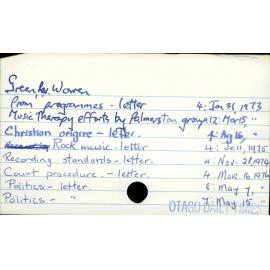 Green, Rev. Warren
Prom programmes - letter 4: Jan 31, 1973
Music Therapy efforts by Palmerston group 12: Mar 15, "
Christian origins - letter. 4: Aug 16, "
Rock music - letter 4: Jan 11, 1975
Recording standards - letter. 4: Nov. 28, 1974
Court procedure. - letter. 4: Mar 16, 1976
Politics - letter. 8: May 7, "
Politics - " 7: May 15, "
OTAGO DAILY TIMES